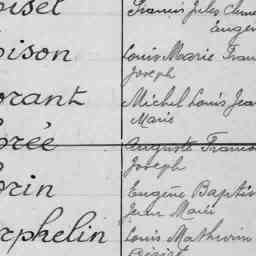 oisel Francis Jules Cleme
Eugen
oison Louis Marie Fran
Joseph
orant Michel Louis Jea
Marie
orée Auguste Franco
Joseph
orin Eugène Baptis
Jean Marie
rphelin Louis Mathurin